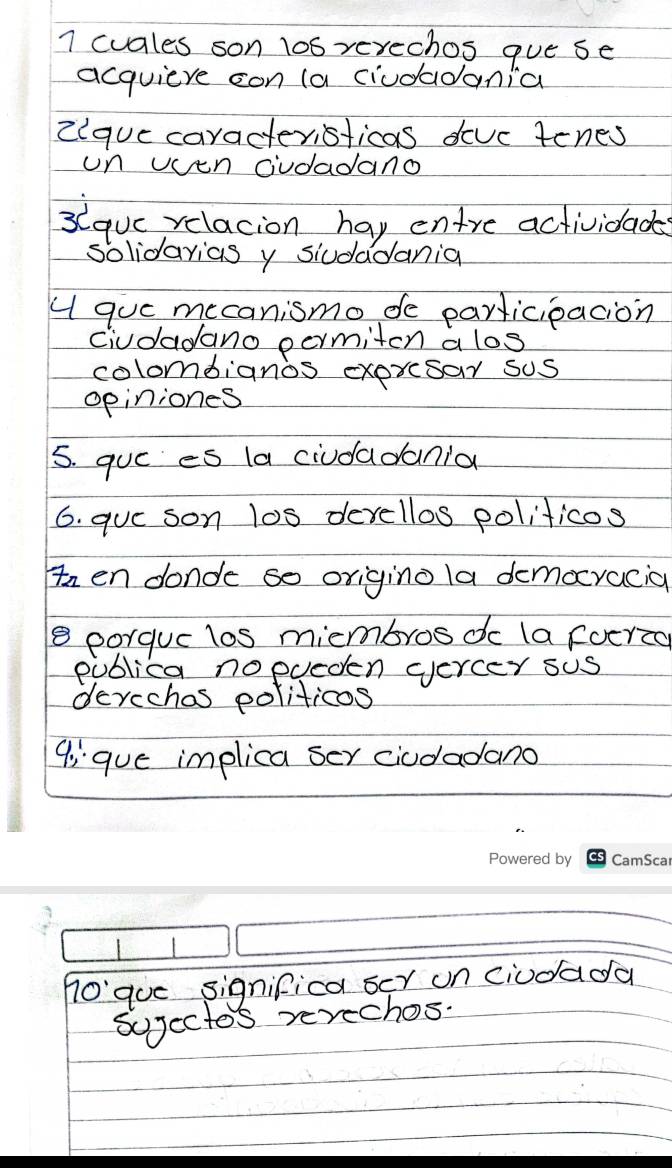 1 cuales son los rerechos que se
acquiere con la ciudadania
2¿que caracteristicas deue tenes
un ucen ciudadano
3¿que relacion hay entre actividades
solidarias y siudadania
4 que mecanismo de participacion
ciudadano permiten a los
colombianos expresar sus
opiniones
5. que es la ciudadania
6. que son los derellos politicos
7 en donde se origino la democracia
8 porque los miembros de la fuerza
publica no pueden ejercer sus
derechos politicos
9. que implica ser ciudadano
Powered by CS CamScan
10 que significa ser un ciudada
sugectos rerechos.